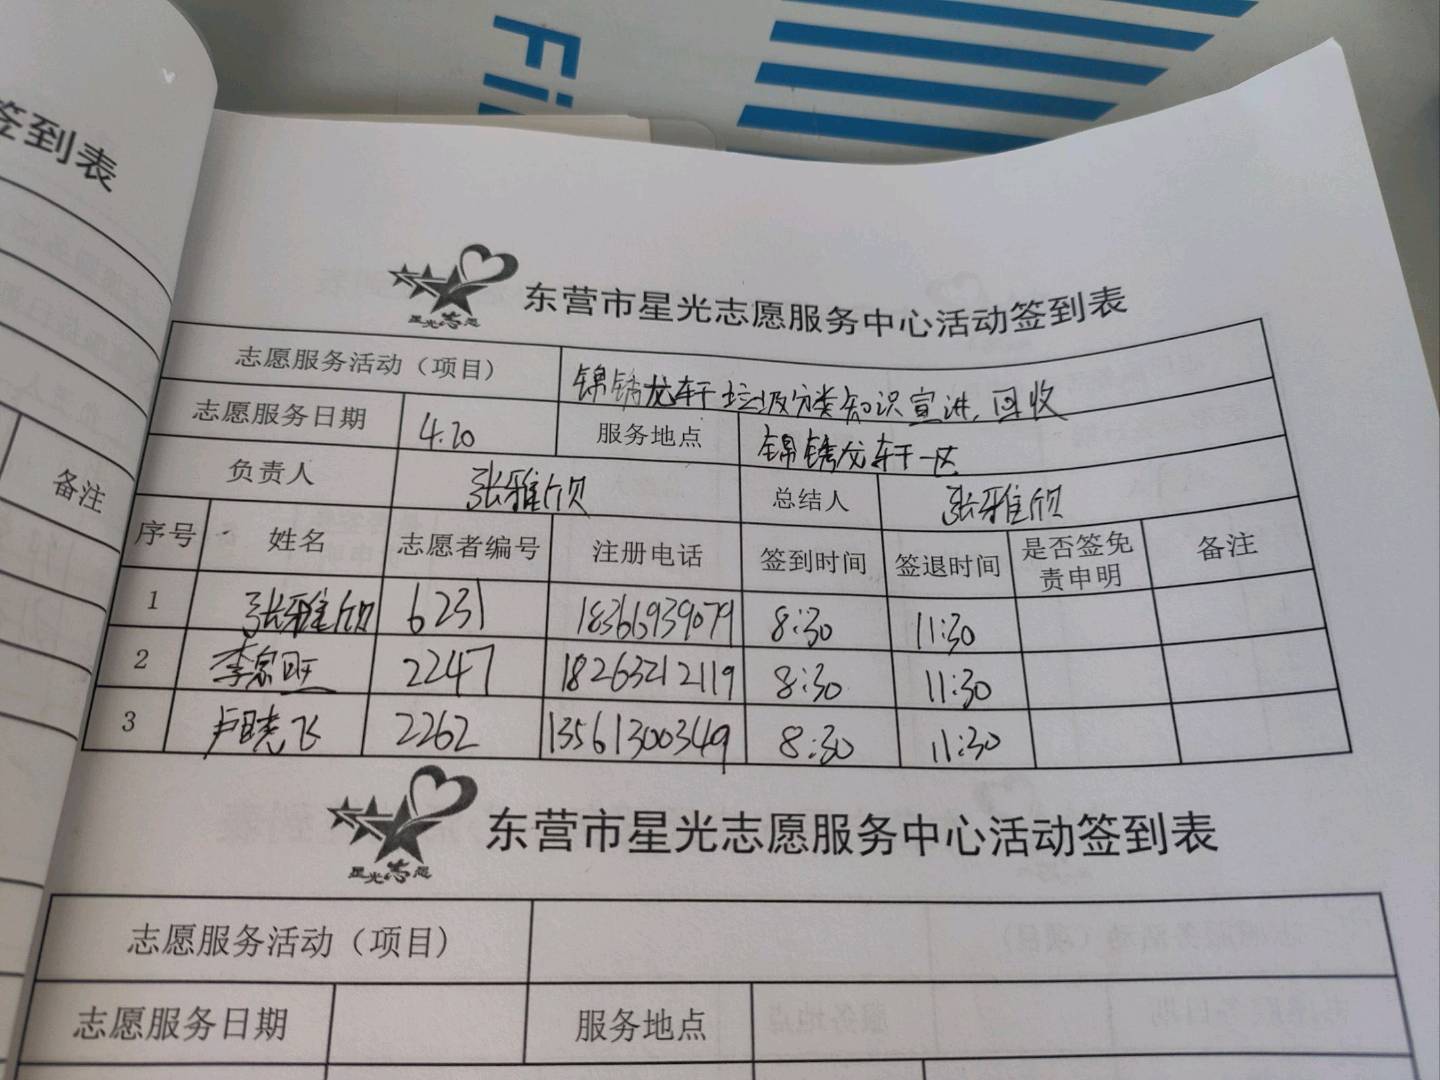 Fi
签到表
备注
星光志愿
东营市星光志愿服务中心活动签到表
志愿服务活动（项目） 锦绣龙轩垃圾分类知识宣讲、回收
志愿服务日期 4.20 服务地点 锦绣龙轩一区
负责人 张雅欣 总结人 张雅欣
序号 姓名 志愿者编号 注册电话 签到时间 签退时间 是否签免责申明 备注
1 张雅欣 6231 18366939079 8:30 11:30
2 李宗旺 2247 18263212119 8:30 11:30
3 卢晓飞 2262 13561300349 8:30 11:30
星光志愿
东营市星光志愿服务中心活动签到表
志愿服务活动（项目）
志愿服务日期 服务地点